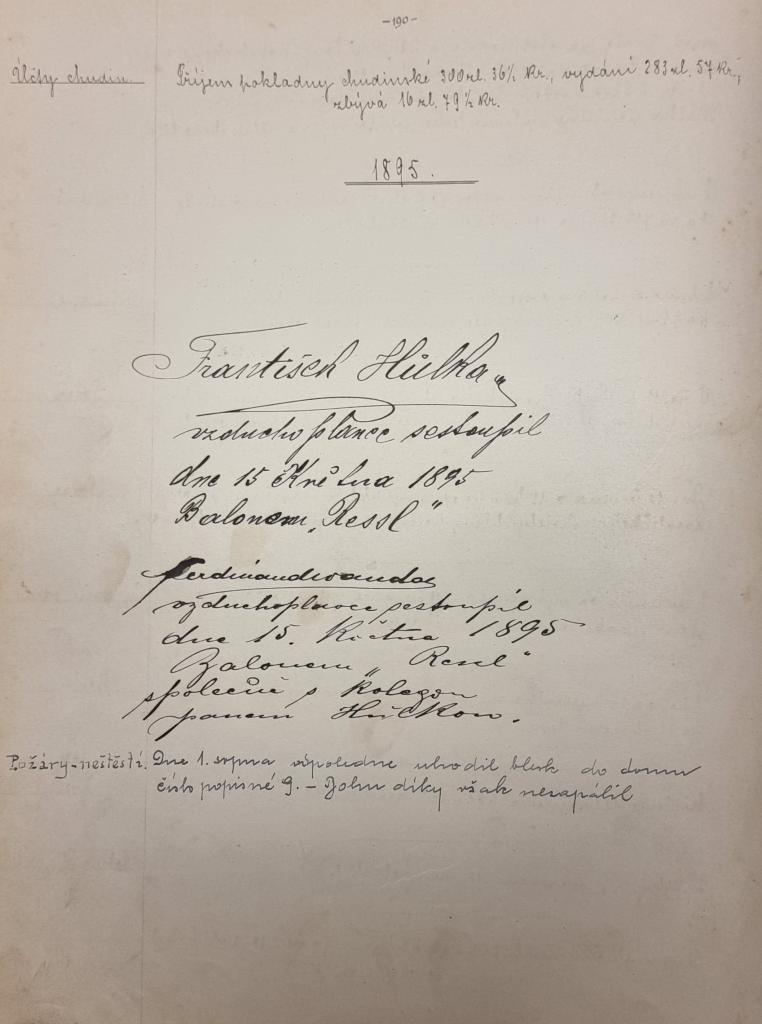 -190-
Účty chudin.
Příjem pokladny chudinské 300 zl. 36½ kr., vydání 283 zl. 57 kr.,
zbývá 16 zl. 79½ kr.
1895.
František Hůlka
vzduchoplavec sestoupil
dne 15 Května 1895
Balonem „Ressl"
Ferdinand Wanda
vzduchoplavec sestoupil
dne 15. Května 1895
Balonem „Ressl"
společně s kolegou
panem Hůlkou.
Požáry-neštěstí. Dne 1. srpna odpoledne uhodil blesk do domu
číslo popisné 9. – Bohu díky však nezapálil